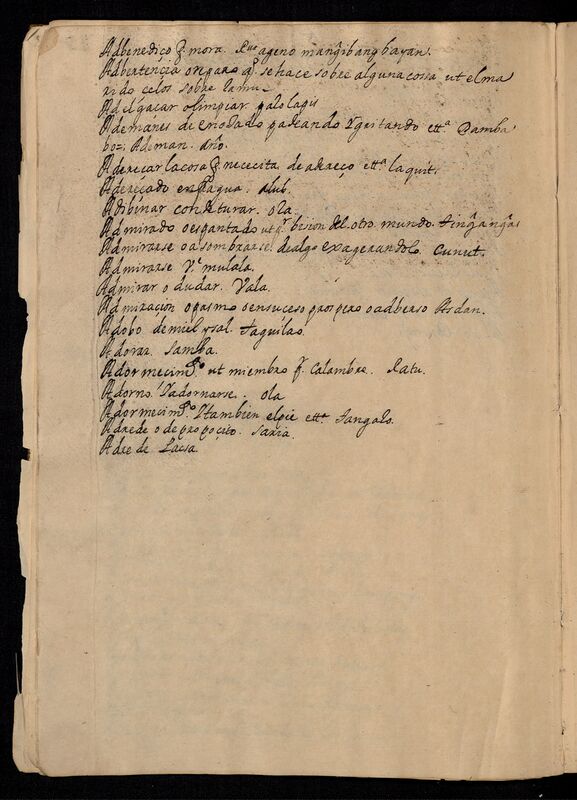 Adbenediço q̃ mora. Rno ageno mang̃ibang bayan.
Adbertençia o reparo q̃ se hace sobre alguna cossa ut el ma
rido celos sobre
Adelgaçar o limpiar palo lapis
Ademanes de enojado pateando Y gritando etta. Damba
boz, Ademan. año.
Adereçar la cosa q̃ neceçita de adreço etta laquit.
Adereçado en agua. alub.
Adibinar conjeturar. ola
Admirado o espantado ut qr. bision del otro mundo. ting̃ang̃ang̃
Admirarse o asombrarse de algo exagerandolo. Cunut.
Admirarse Yt mulala.
Admirar o dudar. Vala.
Admiracion o pasmo o en suceso prospero o adberso Asdan.
Adobo de miel y sal. taguilao
Adorar. Samba.
Adormecimto ut miembro q̃ Calambre. Ratu.
Adorno. Yadornarse. ola
Adormecimto. Y tambien el pie etta. tangalo.
Adrede o de propoçito. saria.
Adrede Lacsa.